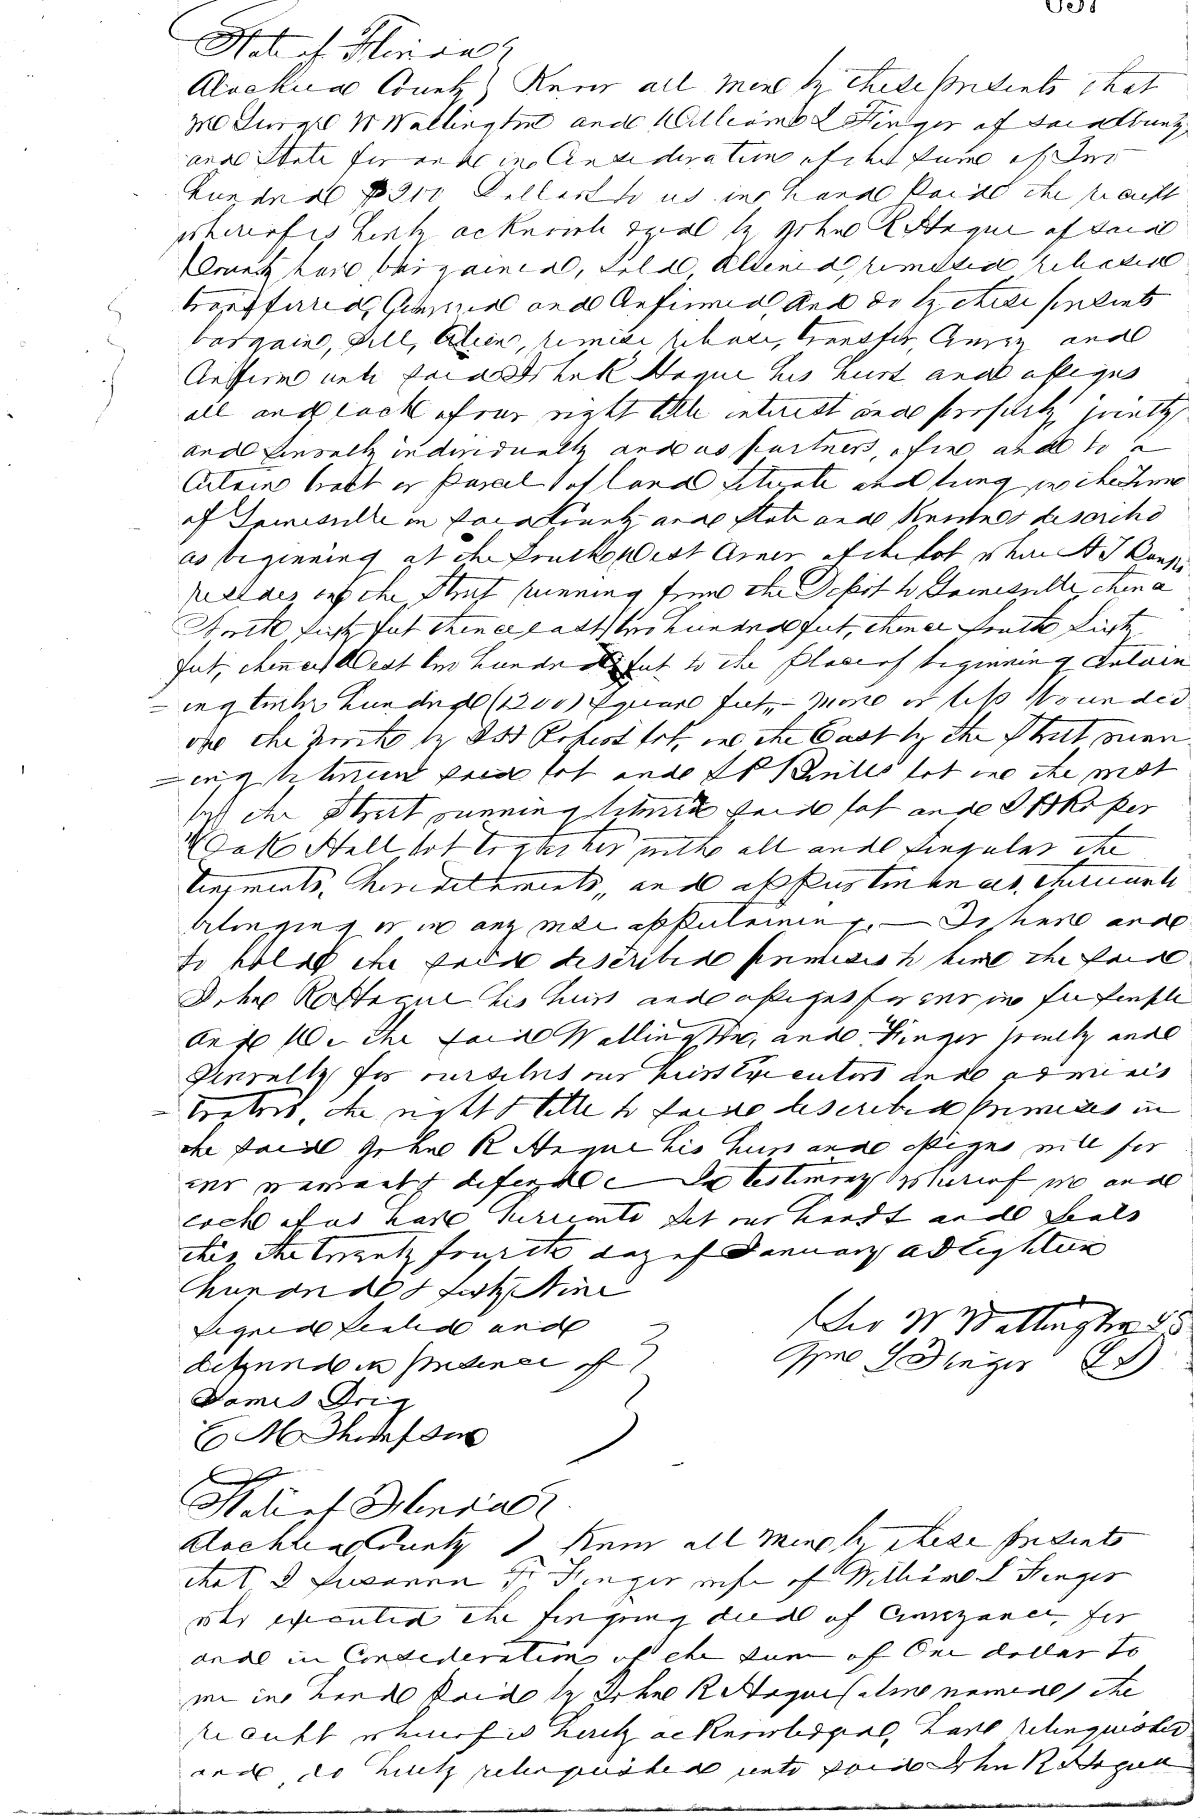 State of Florida
Alachua County } Know all Men by these presents that
we George W Wallington and William L Finger of said County
and State for and in Consideration of the sum of Two
hundred $200 Dollars to us in hand paid the receipt
whereof is hereby acknowledged by John R Hogue of said
County have bargained, sold, aliened, remised released
transferred, Conveyed and Confirmed, And do by these presents
bargain, sell, alien, remise release, transfer, Convey and
Confirm unto said John R Hogue his heirs and assigns
all and each of our right title interest and property jointly
and severally individually and as partners, of in and to a
Certain tract or parcel of land situate and being in the Town
of Gainesville in said County and State and Known & described
as beginning at the South West Corner of the lot where A J
resides on the Street running from the Depot to Gainesville thence
North sixty feet thence east two hundred feet, thence South Sixty
feet, thence West two hundred feet to the place of beginning Contain
=ing twelve hundred (1200) square feet, - more or less bounded
on the North by lot, on the East by the Street runn
=ing between said lot and lot on the west
by the Street running between said lot and Roper
Oak Hall lot together with all and singular the
tenements, hereditaments, and appurtenances, thereunto
belonging or in any wise appertaining. — To have and
to hold the said described premises to him the said
John R Hogue his heirs and assigns forever in fee simple
And We the said Wallington, and Finger jointly and
severally for ourselves our heirs Executors and adminis
=trators, the right & title to said described premises in
the said John R Hogue his heirs and assigns will for
ever warrant & defend — In testimony whereof we and
each of us have hereunto set our hands and seals
this the twenty fourth day of January AD Eighteen
hundred & sixty Nine
Signed sealed and
delivered in presence of
Geo W Wallington LS
Wm L Finger LS
James Doig
E M Thompson
State of Florida
Alachua County } Know all Men by these presents
that I Susanna F. Finger wife of William L Finger
who executed the foregoing deed of Conveyance, for
and in Consideration of the sum of One dollar to
me in hand paid by John R Hogue (above named) the
receipt whereof is hereby acknowledged, have relinquished
and do hereby relinquished unto said John R Hogue